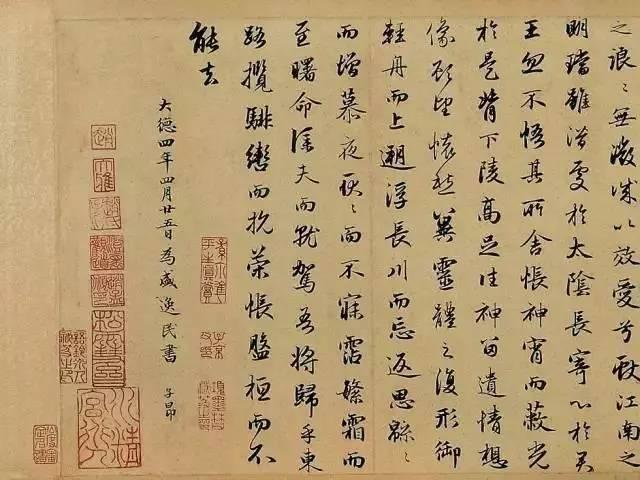 之浪〻無微情以效愛兮獻江南之
明璫雖潛處於太陰長寄心於君
王忽不悟其所舍悵神宵而蔽光
於是背下陵高足往神留遺情想
像顧望懷愁冀靈體之復形御
輕舟而上遡浮長川而忘返思緜〻
而增慕夜耿〻而不寐霑繁霜而
至曙命僕夫而就駕吾將歸乎東
路攬騑轡而抗策悵盤桓而不
能去
大德四年四月廿五日為盛逸民書 子昂
趙
大雅
松雪齋